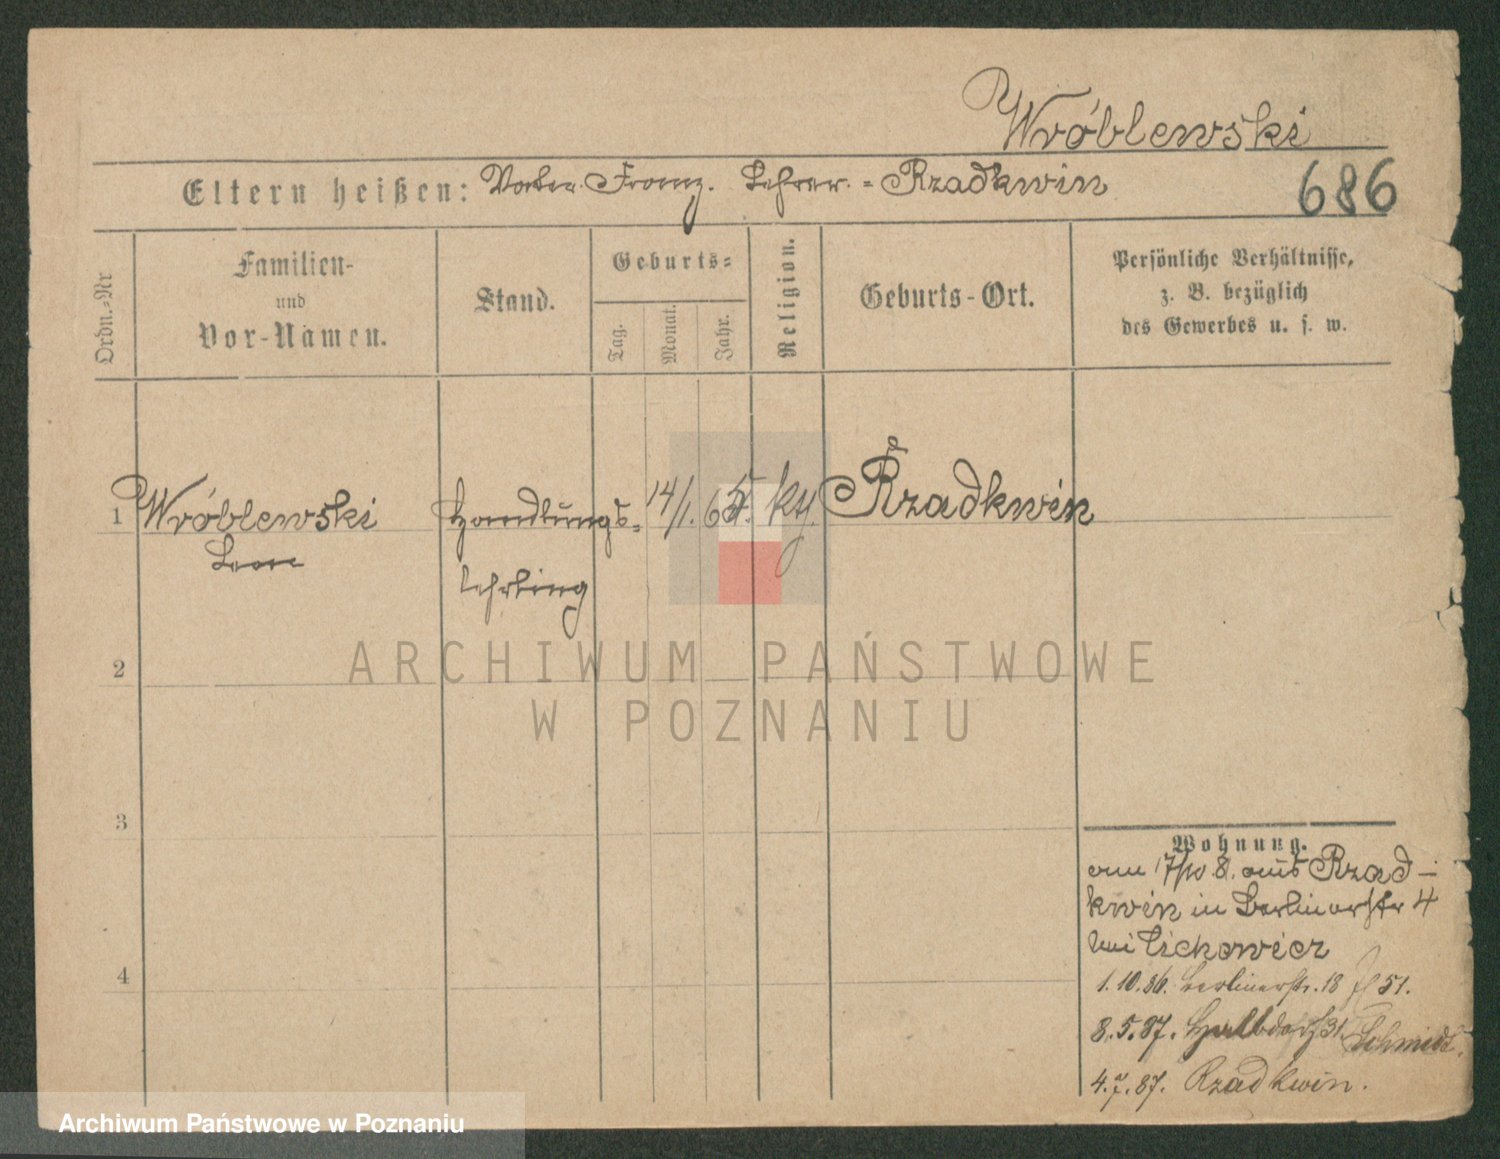 Wróblewski
Eltern heißen: Vater Franz. Lehrer. = Rzadkwin 686
Ordn.-Nr
Familien- und Vor-Namen.
Stand.
Geburts=
Tag.
Monat.
Jahr.
Religion.
Geburts-Ort.
Persönliche Verhältnisse,
z. B. bezüglich
des Gewerbes u. s. w.
1 Wróblewski Handlungs= 14/1. 65. Rzadkwin
Leon
lehrling
2
ARCHIWUM PAŃSTWOWE
W POZNANIU
3
Wohnung.
am 17/10 8. aus Rzad-
kwin in Berlinerstr 4
bei
4
1. 10. 86. Berlinerstr. 18 51.
8. 5. 87. Halbdorfs 31 Schmidt.
4. 7. 87. Rzadkwin.
Archiwum Państwowe w Poznaniu